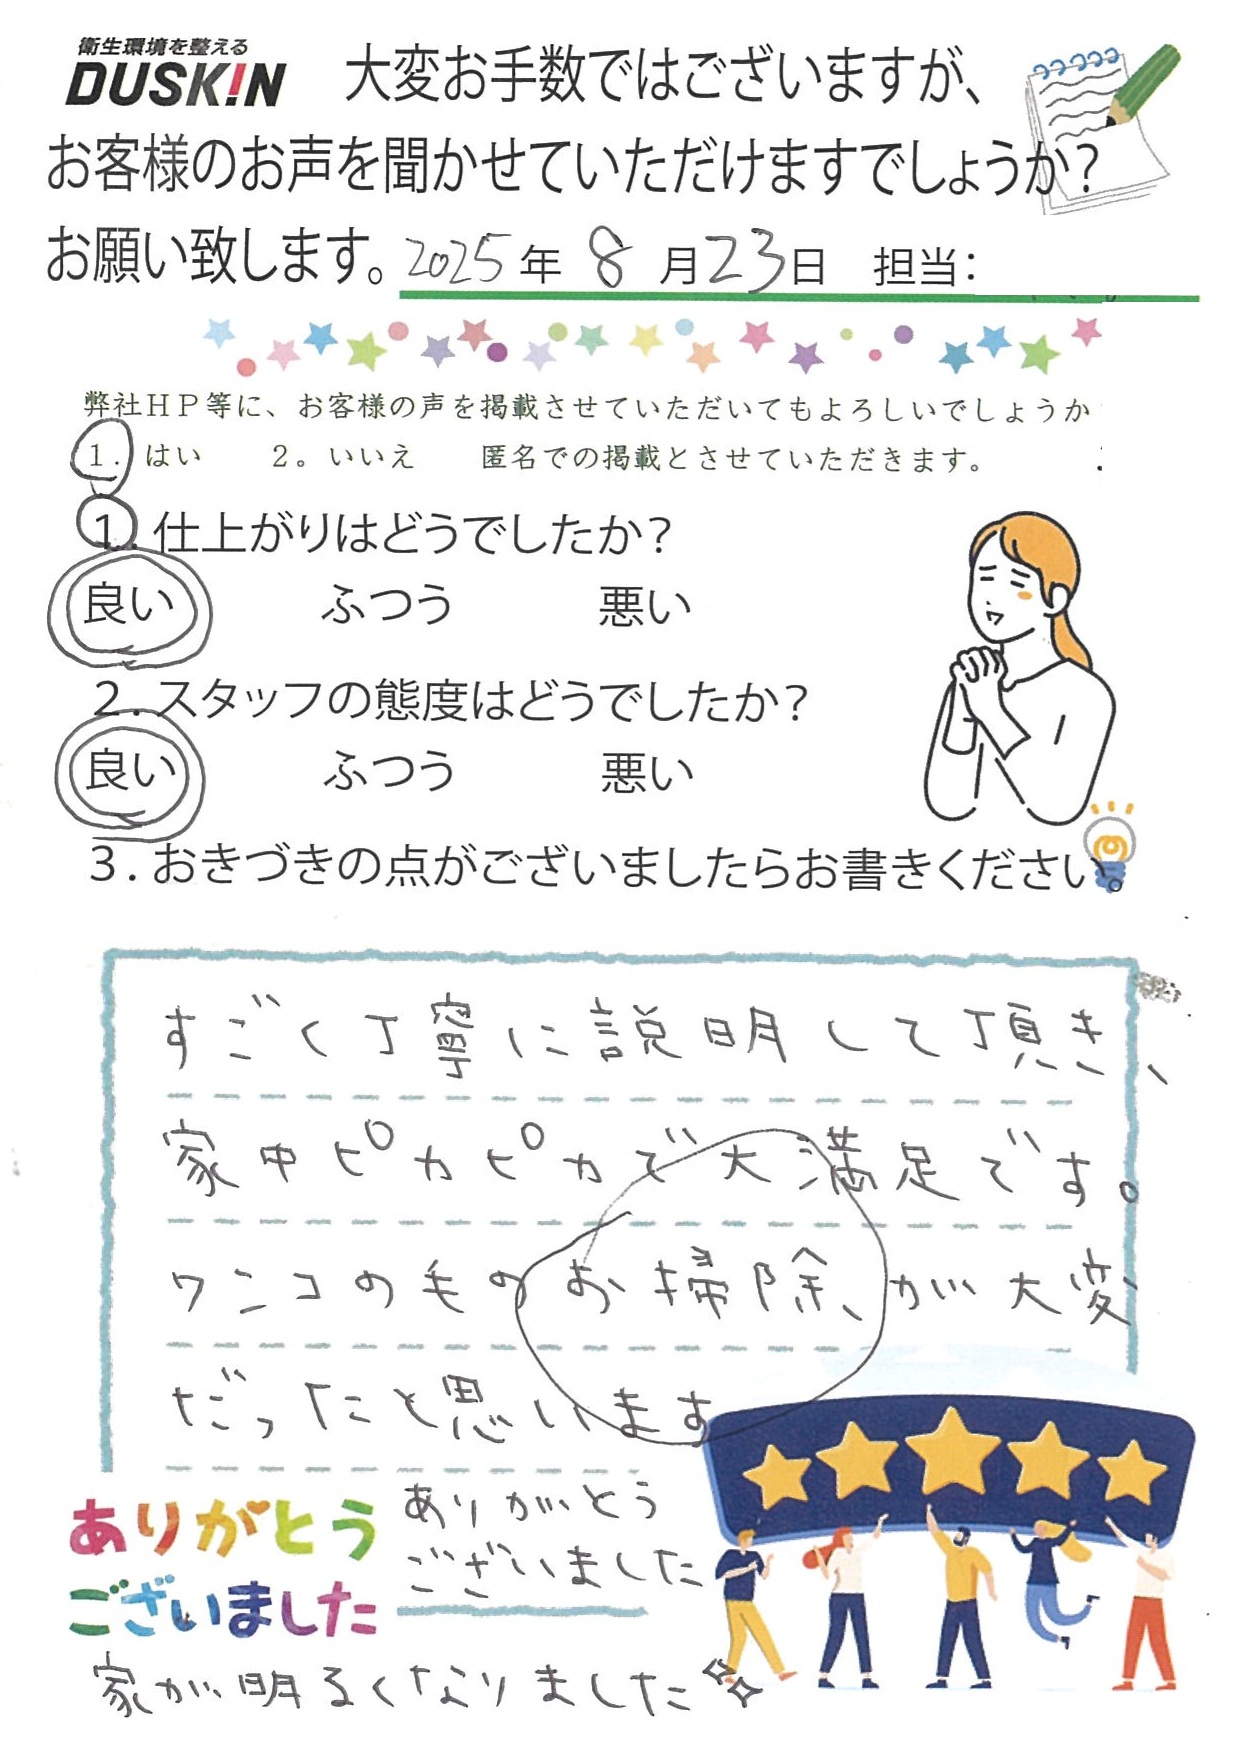 衛生環境を整える
DUSKIN 大変お手数ではございますが、
お客様のお声を聞かせていただけますでしょうか?
お願い致します。2025年 8月23日 担当:
弊社HP等に、お客様の声を掲載させていただいてもよろしいでしょうか
1. はい 2。いいえ 匿名での掲載とさせていただきます。
1.仕上がりはどうでしたか?
良い ふつう 悪い
2.スタッフの態度はどうでしたか?
良い ふつう 悪い
3.おきづきの点がございましたらお書きください。
すごく丁寧に説明して頂き、
家中ピカピカで大満足です。
ワンコの毛のお掃除、が大変
だったと思います
ありがとう
ございました
ありがとう
ございました
家が明るくなりました